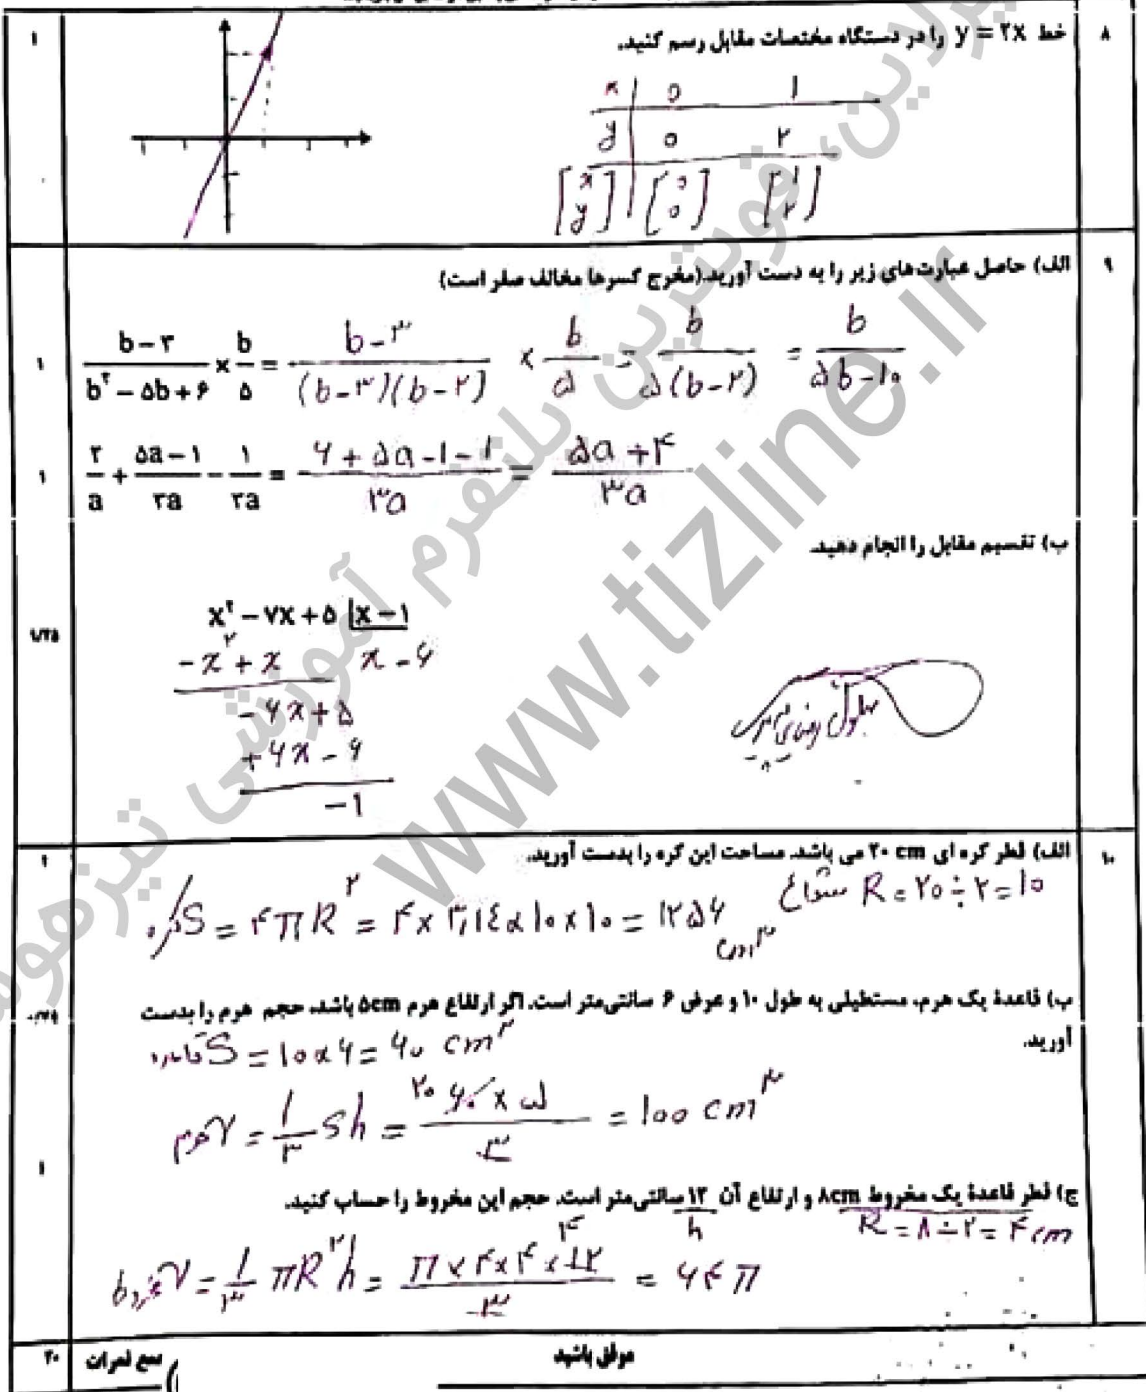 ۸ خط y = ۲x را در دستگاه مختصات مقابل رسم کنید. ۱
x | 0 1
y | 0 ۲
[x y] [0 0] [1 ۲]
۹ الف) حاصل عبارت‌های زیر را به دست آورید.(مخرج کسرها مخالف صفر است)
۱ (b-۳)/(b²-۵b+۶) × b/۵ = (b-۳)/((b-۳)(b-۲)) × b/۵ = b/(۵(b-۲)) = b/(۵b-۱۰)
۱ ۲/a + (۵a-۱)/۳a - ۱/۳a = (۶+۵a-۱-۱)/۳a = (۵a+۴)/۳a
ب) تقسیم مقابل را انجام دهید.
۱/۲۵
x² - ۷x + ۵ |x - ۱
-x² + x x - ۶
-۶x + ۵
+۶x - ۶
-۱
۱۰ الف) قطر کره ای ۲۰ cm می باشد. مساحت این کره را بدست آورید. ۱
شعاع R = ۲۰ ÷ ۲ = ۱۰
کره S = ۴πR² = ۴ × ۳,۱٤ × ۱۰ × ۱۰ = ۱۲۵۶
ب) قاعدهٔ یک هرم، مستطیلی به طول ۱۰ و عرض ۶ سانتی‌متر است. اگر ارتفاع هرم ۵cm باشد، حجم هرم را بدست
آورید.
قاعده S = ۱۰ × ۶ = ۶۰ cm²
هرم V = ۱/۳ Sh = ۲۰ ۶۰ × ۵/۳ = ۱۰۰ cm³
۱
ج) قطر قاعدهٔ یک مخروط ۸cm و ارتفاع آن ۱۲ سانتی‌متر است. حجم این مخروط را حساب کنید.
h R = ۸ ÷ ۲ = ۴ cm
مخروط V = ۱/۳ πR²h = π × ۴ × ۴ × ۱۲ ۴/۳ = ۶۴π
موفق باشید
جمع نمرات ۲۰
www.tizline.ir